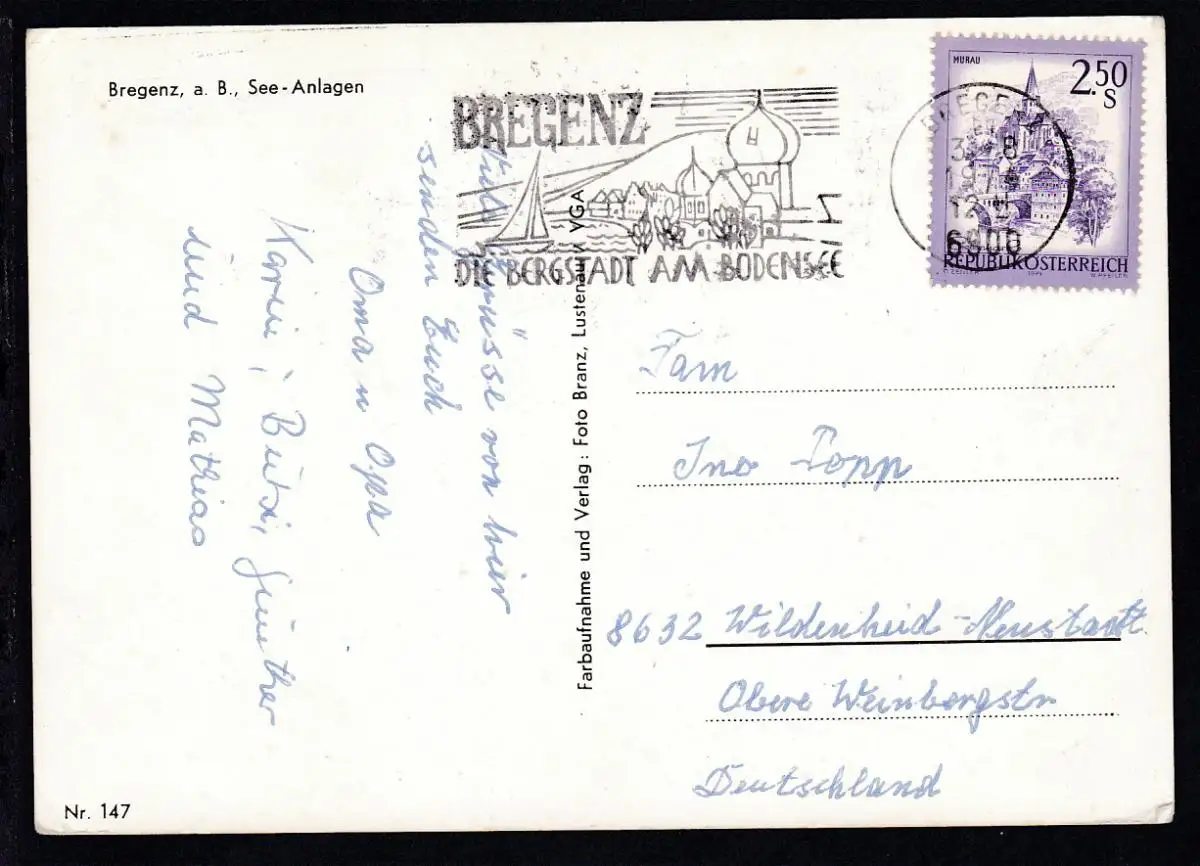 Bregenz, a. B., See-Anlagen
BREGENZ
DIE BERGSTADT AM BODENSEE
MURAU
2.50
S
6900
REPUBLIK ÖSTERREICH
Viele Grüsse von hier
senden Euch
Oma u Opa
Karin, Butxi, Günther
und Mathias
Farbaufnahme und Verlag: Foto Branz, Lustenau, VGA
Fam
Ino Popp
8632 Wildenheid-Neustadt
Obere Weinbergstr
Deutschland
Nr. 147